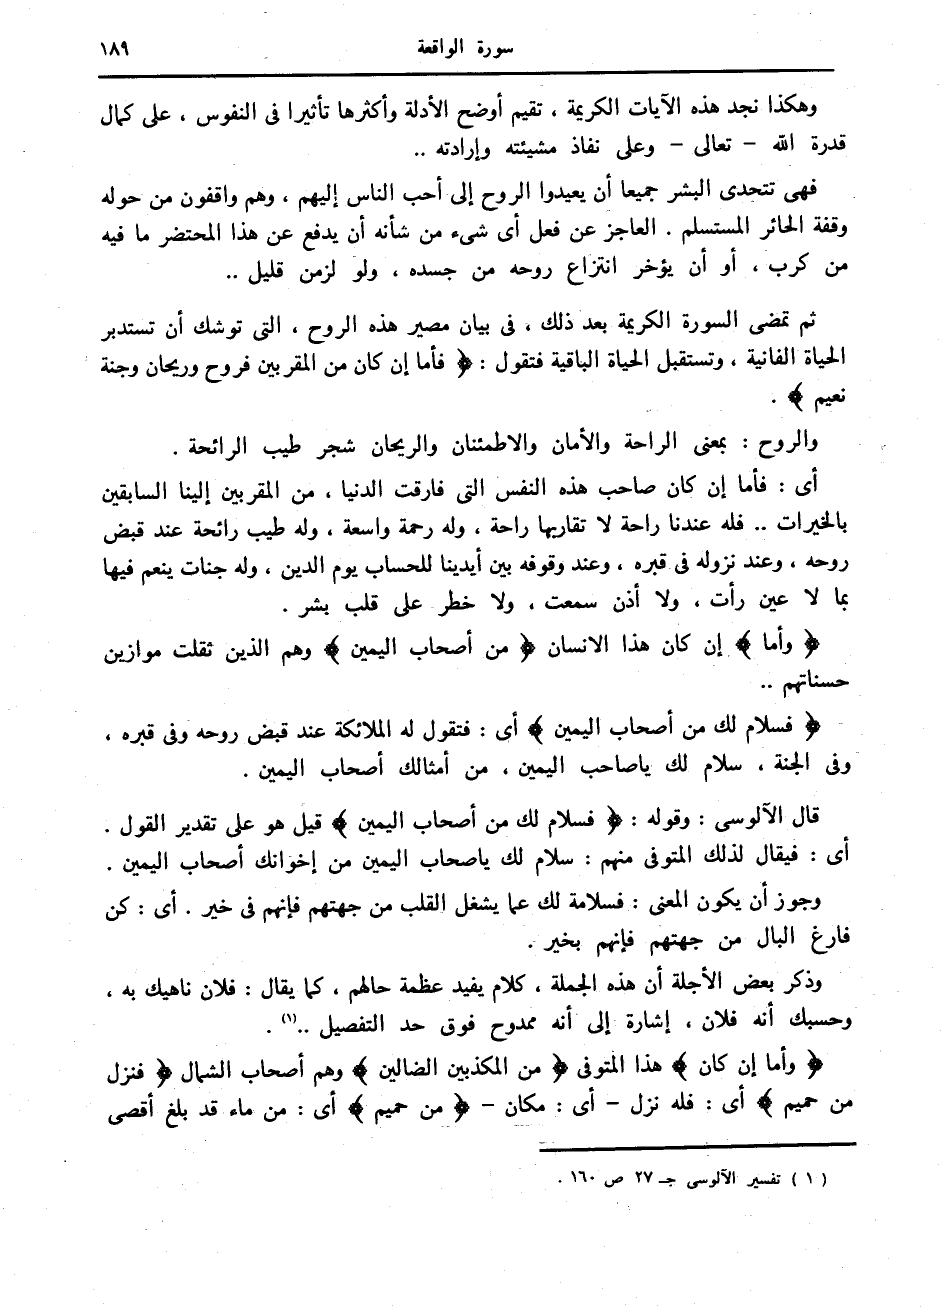 سورة الواقعة ١٨٩
وهكذا نجد هذه الآيات الكريمة ، تقيم أوضح الأدلة وأكثرها تأثيرا فى النفوس ، على كمال
قدرة الله – تعالى – وعلى نفاذ مشيئته وإرادته ..
فهى تتحدى البشر جميعا أن يعيدوا الروح إلى أحب الناس إليهم ، وهم واقفون من حوله
وقفة الحائر المستسلم . العاجز عن فعل أى شىء من شأنه أن يدفع عن هذا المحتضر ما فيه
من كرب ، أو أن يؤخر انتزاع روحه من جسده ، ولو لزمن قليل ..
ثم تمضى السورة الكريمة بعد ذلك ، فى بيان مصير هذه الروح ، التى توشك أن تستدبر
الحياة الفانية ، وتستقبل الحياة الباقية فتقول : ﴿ فأما إن كان من المقربين فروح وريحان وجنة
نعيم ﴾ .
والروح : بمعنى الراحة والأمان والاطمئنان والريحان شجر طيب الرائحة .
أى : فأما إن كان صاحب هذه النفس التى فارقت الدنيا ، من المقربين إلينا السابقين
بالخيرات .. فله عندنا راحة لا تقاربها راحة ، وله رحمة واسعة ، وله طيب رائحة عند قبض
روحه ، وعند نزوله فى قبره ، وعند وقوفه بين أيدينا للحساب يوم الدين ، وله جنات ينعم فيها
بما لا عين رأت ، ولا أذن سمعت ، ولا خطر على قلب بشر .
﴿ وأما ﴾ إن كان هذا الانسان ﴿ من أصحاب اليمين ﴾ وهم الذين ثقلت موازين
حسناتهم ..
﴿ فسلام لك من أصحاب اليمين ﴾ أى : فتقول له الملائكة عند قبض روحه وفى قبره ،
وفى الجنة ، سلام لك ياصاحب اليمين ، من أمثالك أصحاب اليمين .
قال الآلوسى : وقوله : ﴿ فسلام لك من أصحاب اليمين ﴾ قيل هو على تقدير القول .
أى : فيقال لذلك المتوفى منهم : سلام لك ياصحاب اليمين من إخوانك أصحاب اليمين .
وجوز أن يكون المعنى : فسلامة لك عما يشغل القلب من جهتهم فإنهم فى خير . أى : كن
فارغ البال من جهتهم فإنهم بخير .
وذكر بعض الأجلة أن هذه الجملة ، كلام يفيد عظمة حالهم ، كما يقال : فلان ناهيك به ،
وحسبك أنه فلان ، إشارة إلى أنه ممدوح فوق حد التفصيل ..(١) .
﴿ وأما إن كان ﴾ هذا المتوفى ﴿ من المكذبين الضالين ﴾ وهم أصحاب الشمال ﴿ فنزل
من حميم ﴾ أى : فله نزل – أى : مكان – ﴿ من حميم ﴾ أى : من ماء قد بلغ أقصى
( ١ ) تفسير الآلوسى جـ ٢٧ ص ١٦٠ .